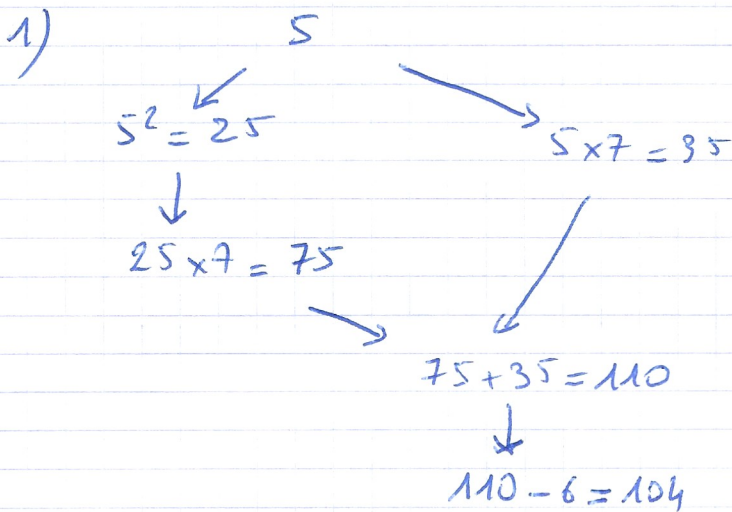 1)
5
5² = 25
5 x 7 = 35
25 x 7 = 75
75 + 35 = 110
110 - 6 = 104